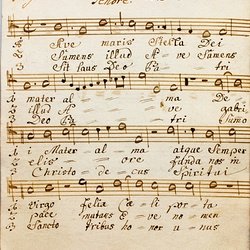 Tenore.
Ave maris Stella Dei
Sumens illud Ave Sumens
Sit laus Deo Pa tri
mater al ma De
illud ve gabri
Deo Pa tri Sumo
i Mater al ma atque Semper
elis ore funda nos in
Christo de cus Spiritui
Virgo felix Cæli porta
pace mutans Evæ no men
Sancto tribus honor u nus